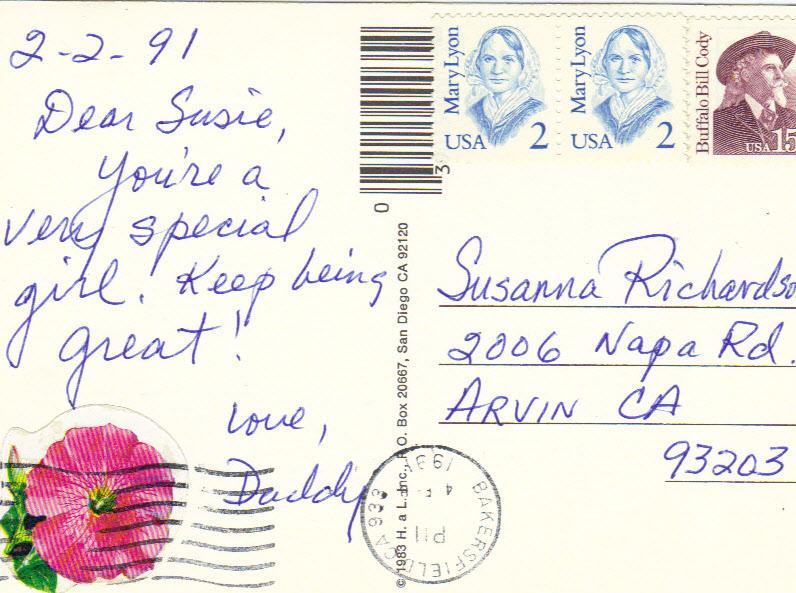 2-2-91
Dear Susie,
You're a
very special
girl. Keep being
great!
Love,
Daddy
Mary Lyon
USA 2
Mary Lyon
USA 2
Buffalo Bill Cody
USA 15
0
3
© 1983 H. a L. Inc., P.O. Box 20667, San Diego CA 92120
Susanna Richardso
2006 Napa Rd.
ARVIN CA
93203
BAKERSFIELD CA 933
PM
4
1991